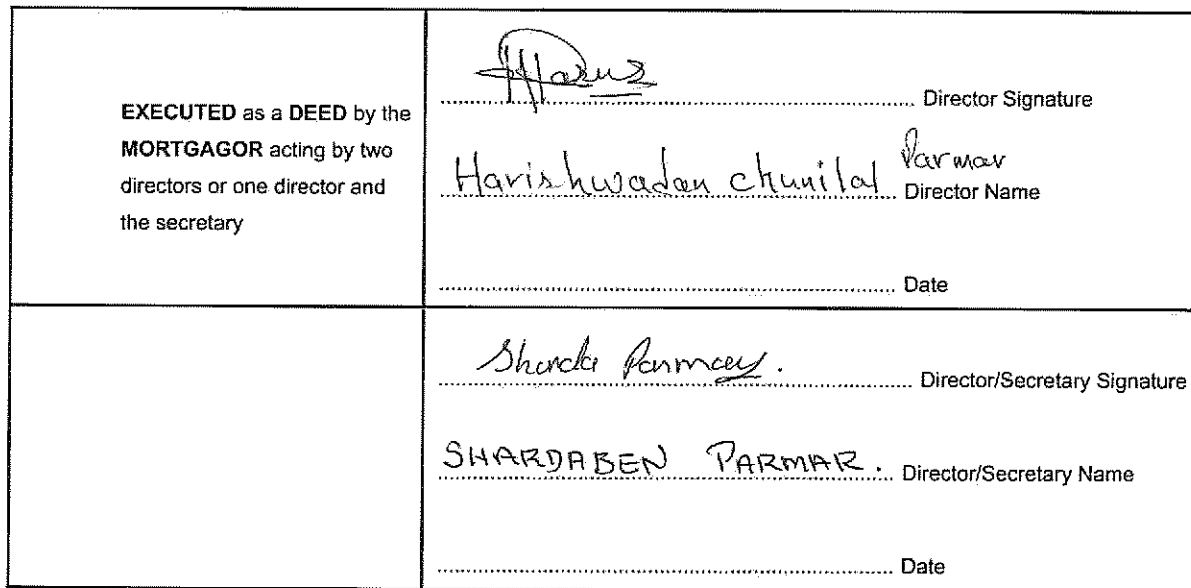 EXECUTED as a DEED by the
MORTGAGOR acting by two
directors or one director and
the secretary
Director Signature
Harishwadan chunilal Parmar
Director Name
Date
Sharda Parmar.
Director/Secretary Signature
SHARDABEN PARMAR.
Director/Secretary Name
Date